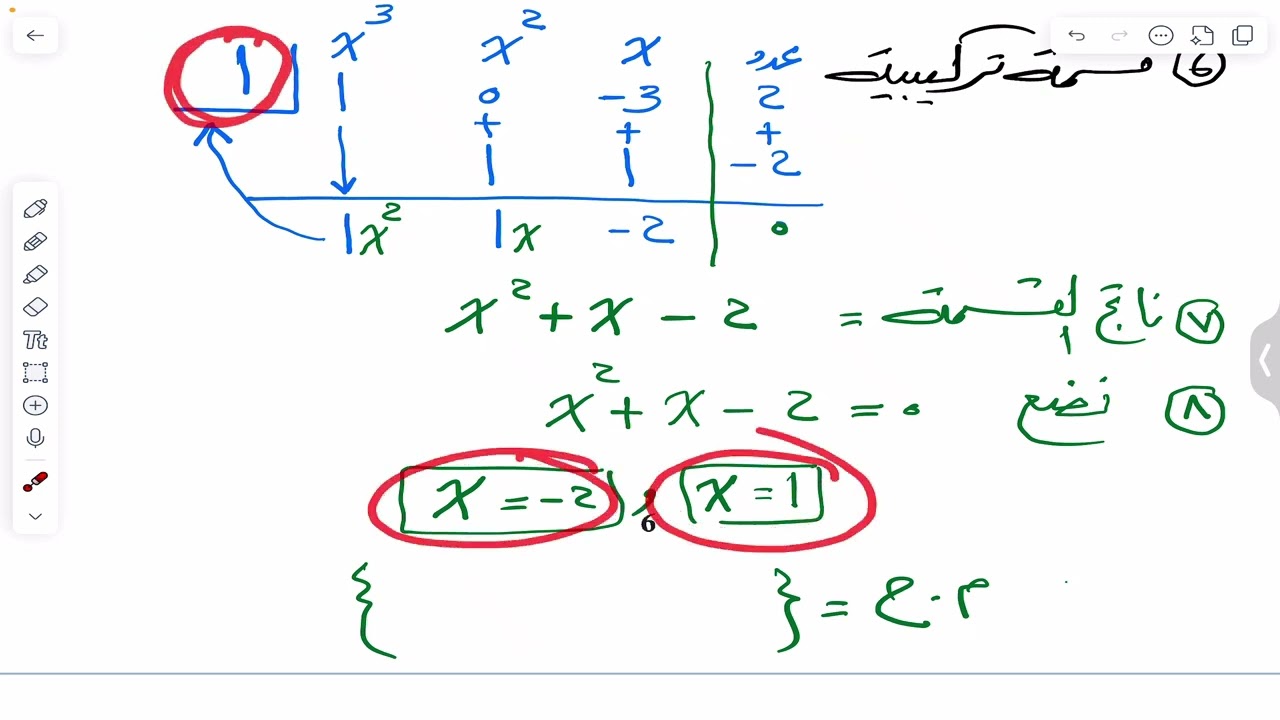 ⑥ قسمة تركيبية
1 x³ x² x عدد
1 0 -3 2
+ + +
1 1 -2
1x² 1x -2 0
⑦ ناتج القسمة = x² + x - 2
⑧ نضع x² + x - 2 = 0
x = 1 , x = -2
6
م.ح = { }
Tt